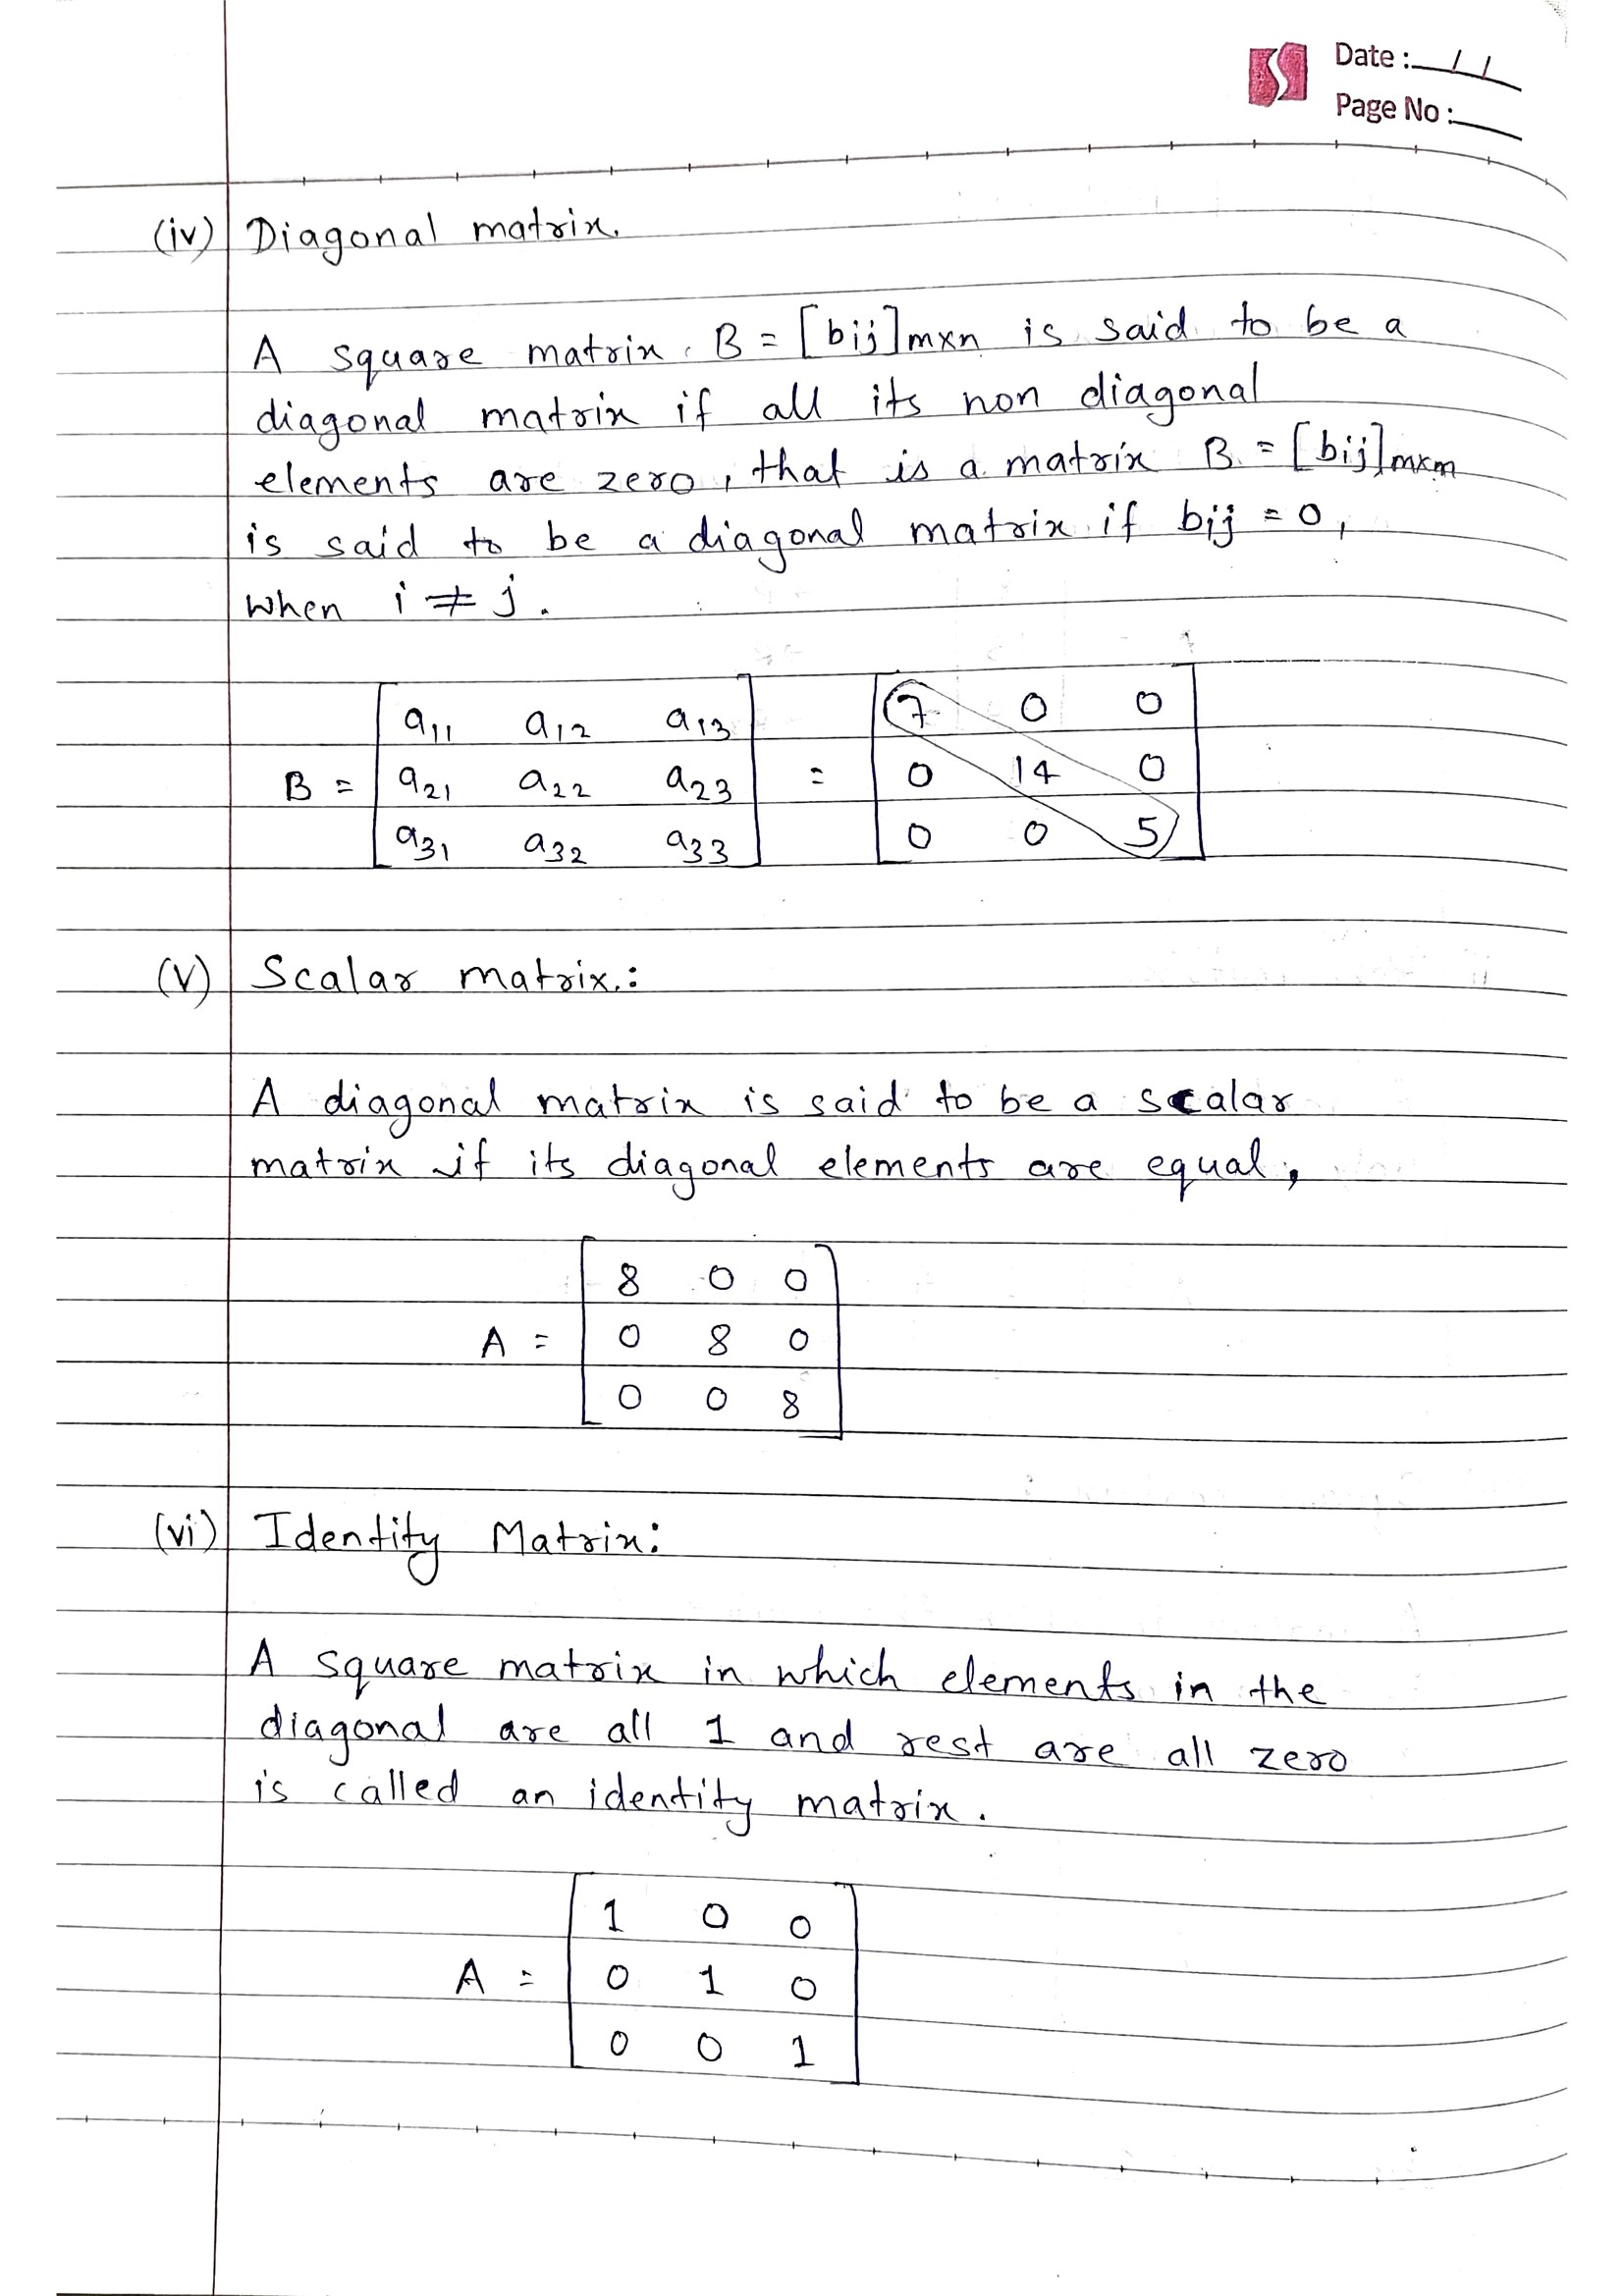 Date : / /
Page No :
(iv) Diagonal matrix.
A square matrix B = [bij]mxn is said to be a
diagonal matrix if all its non diagonal
elements are zero, that is a matrix B = [bij]mxm
is said to be a diagonal matrix if bij = 0,
when i ≠ j.
a11 a12 a13 7 0 0
B = a21 a22 a23 = 0 14 0
a31 a32 a33 0 0 5
(V) Scalar matrix.:
A diagonal matrix is said to be a scalar
matrix if its diagonal elements are equal,
8 0 0
A = 0 8 0
0 0 8
(vi) Identity Matrix:
A square matrix in which elements in the
diagonal are all 1 and rest are all zero
is called an identity matrix.
1 0 0
A = 0 1 0
0 0 1